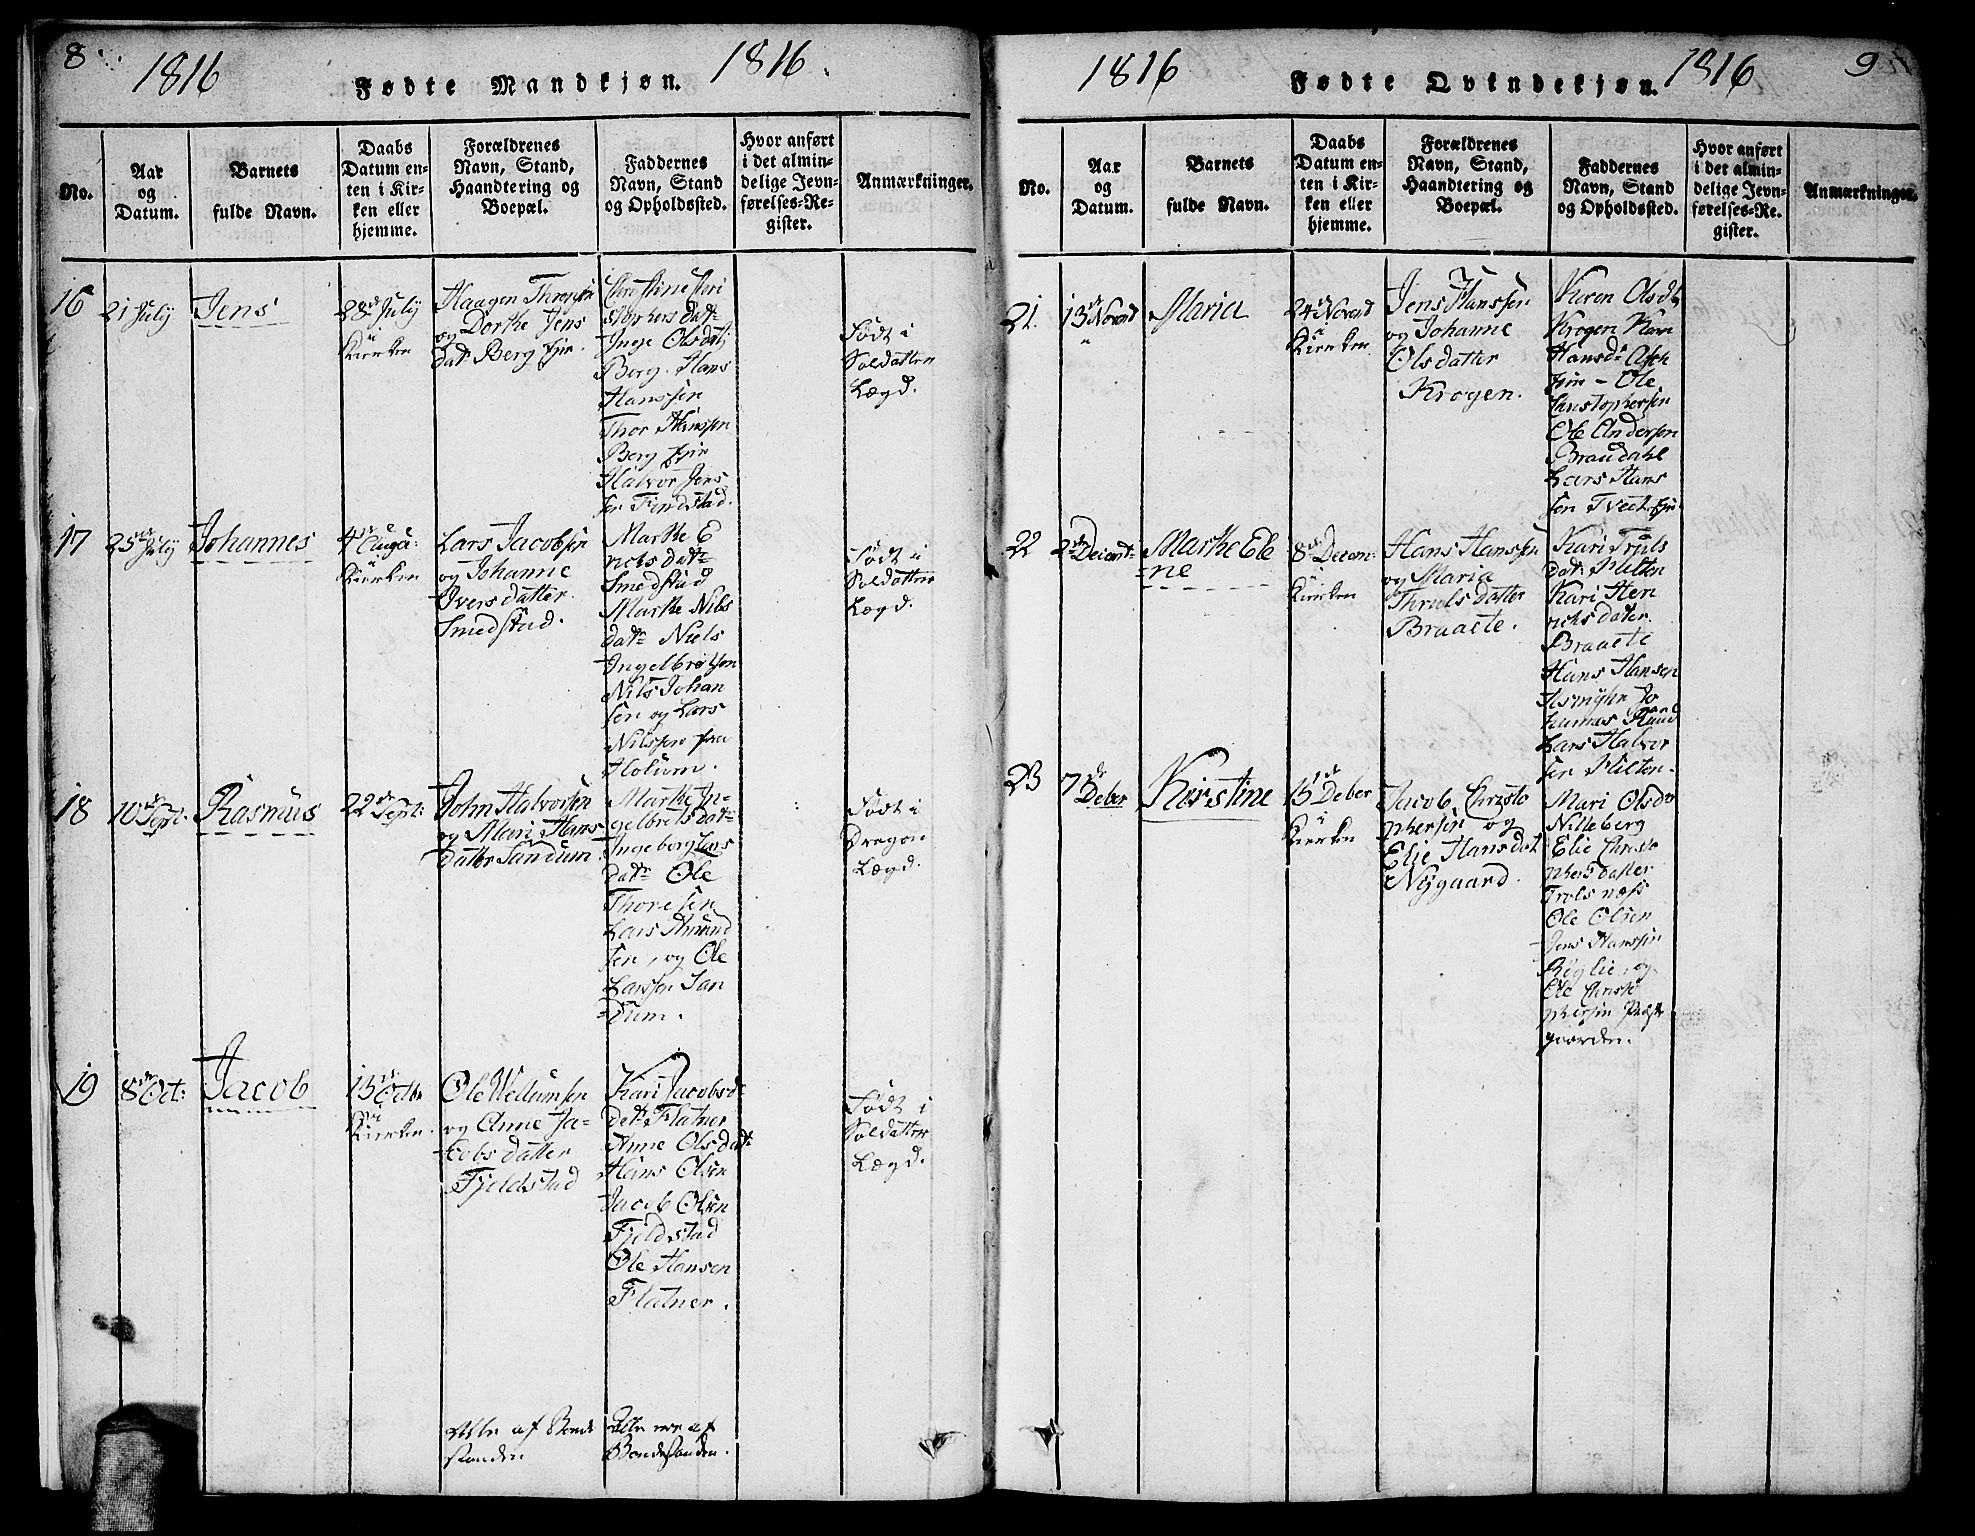 8
1816
Fødte Mandkjøn.
1816.
No.
Aar
og
Datum.
Barnets
fulde Navn.
Daabs
Datum en-
ten i Kir-
ken eller
hjemme.
Forældrenes
Navn, Stand,
Haandtering og
Boepæl.
Faddernes
Navn, Stand
og Opholdssted.
Hvor anført
i det almin-
delige Jevn-
førelses-Re-
gister.
Anmærkninger.
16
21 July
Jens
28de July
i
Kierken
Haagen
og Dorthe Jens
datr Berg
Inge Olsdatr
Berg. Hans
Hanssen
Thor Hanssen
Berg
Halvor Jens
sen Findstad.
Født i
Soldatter
Lægd.
17
25de July
Johannes
4de Aug:
i
Kierken
Lars Jacobsen
og Johanne
Ivers datter
Smedstad.
Marthe E
richs datr
Smedstad
Marthe Nils
datr Niels
Ingelbretsen
Nils Johan
sen og Lars
Nilssen fra
Holum.
Født i
Soldatter
Lægd.
18
10de Sept:
Rasmus
22de Sept:
John Halvorsen
og Mari Hans
datter Sandum.
Marthe In-
gelbrets datr
Ingeborg Lars
datr Ole
Thoresen
Lars Amund
sen, og Ole
Larssen San
=dum.
Født i
Dragon
Lægd.
19
8de Oct:
Jacob
13de Octbr
i
Kierken.
Ole Wellumsen
og Anne Ja-
cobs datter
Fjeldstad
Kari Jacobs
datr Flatner
Anne Olsdatr
Hans Olsen
Jacob Olsen
Fjeldstad
Ole Hansen
Flatner.
Født i
Soldatter
Lægd.
Alle af Bonde
standen
Alle ere af
Bondestanden.
1816
Fødte Qvindekjøn.
1816
9
No.
Aar
og
Datum.
Barnets
fulde Navn.
Daabs
Datum en-
ten i Kir-
ken eller
hjemme.
Forældrenes
Navn, Stand,
Haandtering og
Boepæl.
Faddernes
Navn, Stand
og Opholdssted.
Hvor anført
i det almin-
delige Jevn-
førelses-Re-
gister.
Anmærkninger.
21.
13de
Maria
24de
i
Kierken
Jens Hanssen
og Johanne
Olsdatter
Krogen.
Karen Olsdr
Krogen Kari
Hansdr
Ole
Christophersen
Ole Andersen
Braadahl
Lars Hans
sen Tveit
22
2den Decem:
Marthe Ele
=ne
8de Decem:
i
Kierken
Hans Hanssen
og Maria
Thruls datter
Braaete.
Kari Truls
datr Milten
Kari Hen
richs dater.
Braaete
Hans Hansen
Jo
hannes Ruud
Lars Halvor
sen Milten.
23
7de Deber
Kirstine
15de Deber
i
Kierken
Jacob Christo
phersen og
Elie Hansdat
Nygaard.
Mari Olsdr
Nilleberg
Elie Christo
phers datter
Trolsnæss
Ole Olsen
Jens Hanssen
Røglie, og
Ole Christo
phersen Præste
gaarden.